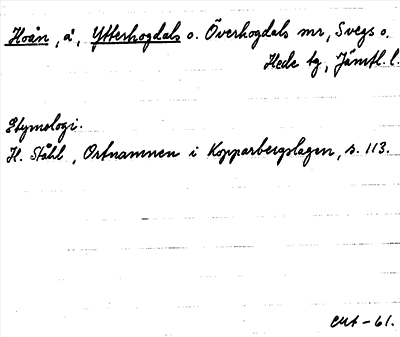 Hoån, å, Ytterhogdals o. Överhogdals mr, Svegs o.
Hede tg, Jämtl. l.
Etymologi.
H. Ståhl, Ortnamnen i Kopparbergslagen, s. 113.
-61.